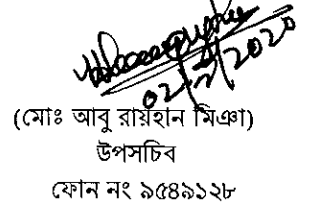 02/2/2020
(মোঃ আবু রায়হান মিঞা)
উপসচিব
ফোন নং ৯৫৪৯১২৮